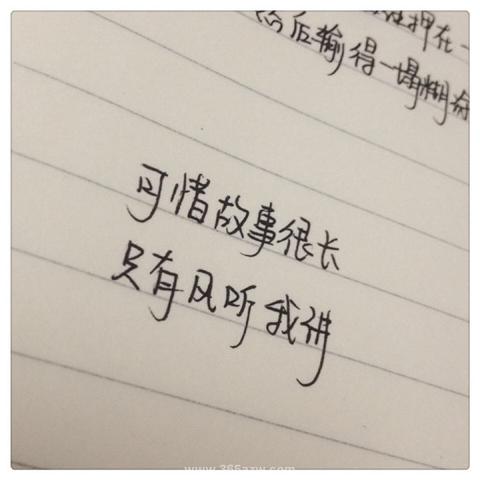 押在一
然后输得一塌糊
可惜故事很长
只有风听我讲
www.365azw.com